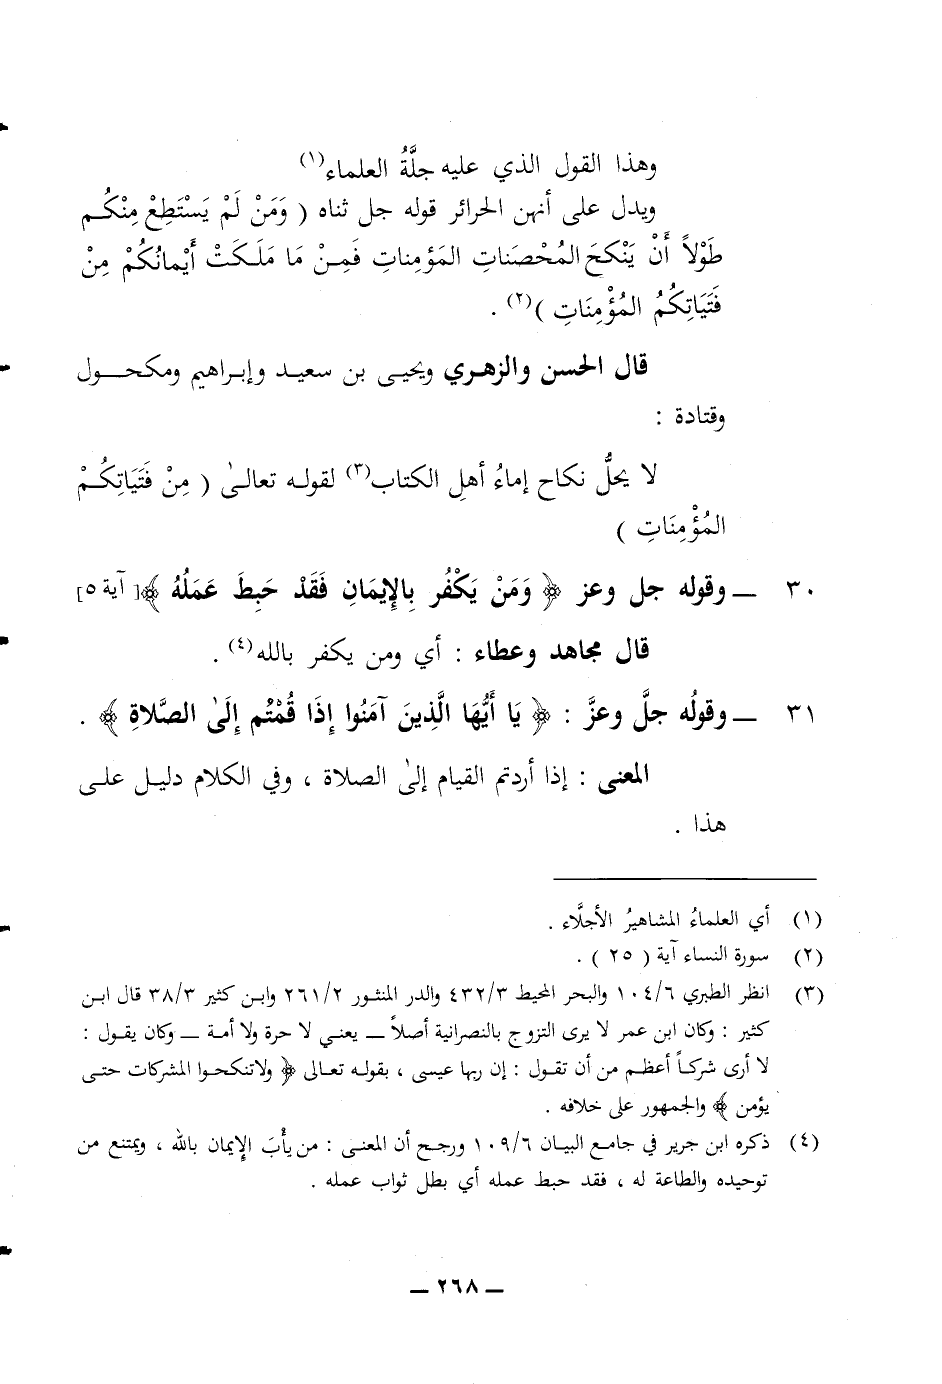 وهذا القول الذي عليه جلَّةُ العلماء(١)
ويدل على أنهن الحرائر قوله جل ثناه ( وَمَنْ لَمْ يَسْتَطِعْ مِنْكُم
طَوْلاً أَنْ يَنْكَحَ المُحْصَناتِ المَؤمِناتِ فَمِنْ مَا مَلَكَتْ أَيْمانُكُمْ مِنْ
فَتَيَاتِكُمُ المُؤْمِنَاتِ )(٢) .
قال الحسن والزهري ويحيى بن سعيد وإبراهيم ومكحول
وقتادة :
لا يحلُّ نكاح إماءُ أهلِ الكتاب(٣) لقوله تعالىٰ ( مِنْ فَتَيَاتِكُمْ
المُؤْمِنَاتِ )
٣٠ ــ وقوله جل وعز ﴿ وَمَنْ يَكْفُر بِالإِيمَانِ فَقَدْ حَبِطَ عَمَلُهُ ﴾[ آية ٥]
قال مجاهد وعطاء : أي ومن يكفر بالله(٤) .
٣١ ــ وقولُه جلَّ وعزَّ : ﴿ يَا أَيُّهَا الَّذِينَ آمَنُوا إِذَا قُمْتُم إِلَىٰ الصَّلَاةِ ﴾ .
المعنى : إذا أردتم القيام إلىٰ الصلاة ، وفي الكلام دليل على
هذا .
(١) أي العلماءُ المشاهيرُ الأجلَّاء .
(٢) سورة النساء آية ( ٢٥ ) .
(٣) انظر الطبري ١٠٤/٦ والبحر المحيط ٤٣٢/٣ والدر المنثور ٢٦١/٢ وابن كثير ٣٨/٣ قال ابن
كثير : وكان ابن عمر لا يرى التزوج بالنصرانية أصلاً ــ يعني لا حرة ولا أمة ــ وكان يقول :
لا أرى شركاً أعظم من أن تقول : إن ربها عيسى ، بقوله تعالى ﴿ ولاتنكحوا المشركات حتى
يؤمن ﴾ والجمهور على خلافه .
(٤) ذكره ابن جرير في جامع البيان ١٠٩/٦ ورجح أن المعنى : من يأْبَ الإيمان بالله ، ويمتنع من
توحيده والطاعة له ، فقد حبط عمله أي بطل ثواب عمله .
ــ ٢٦٨ ــ